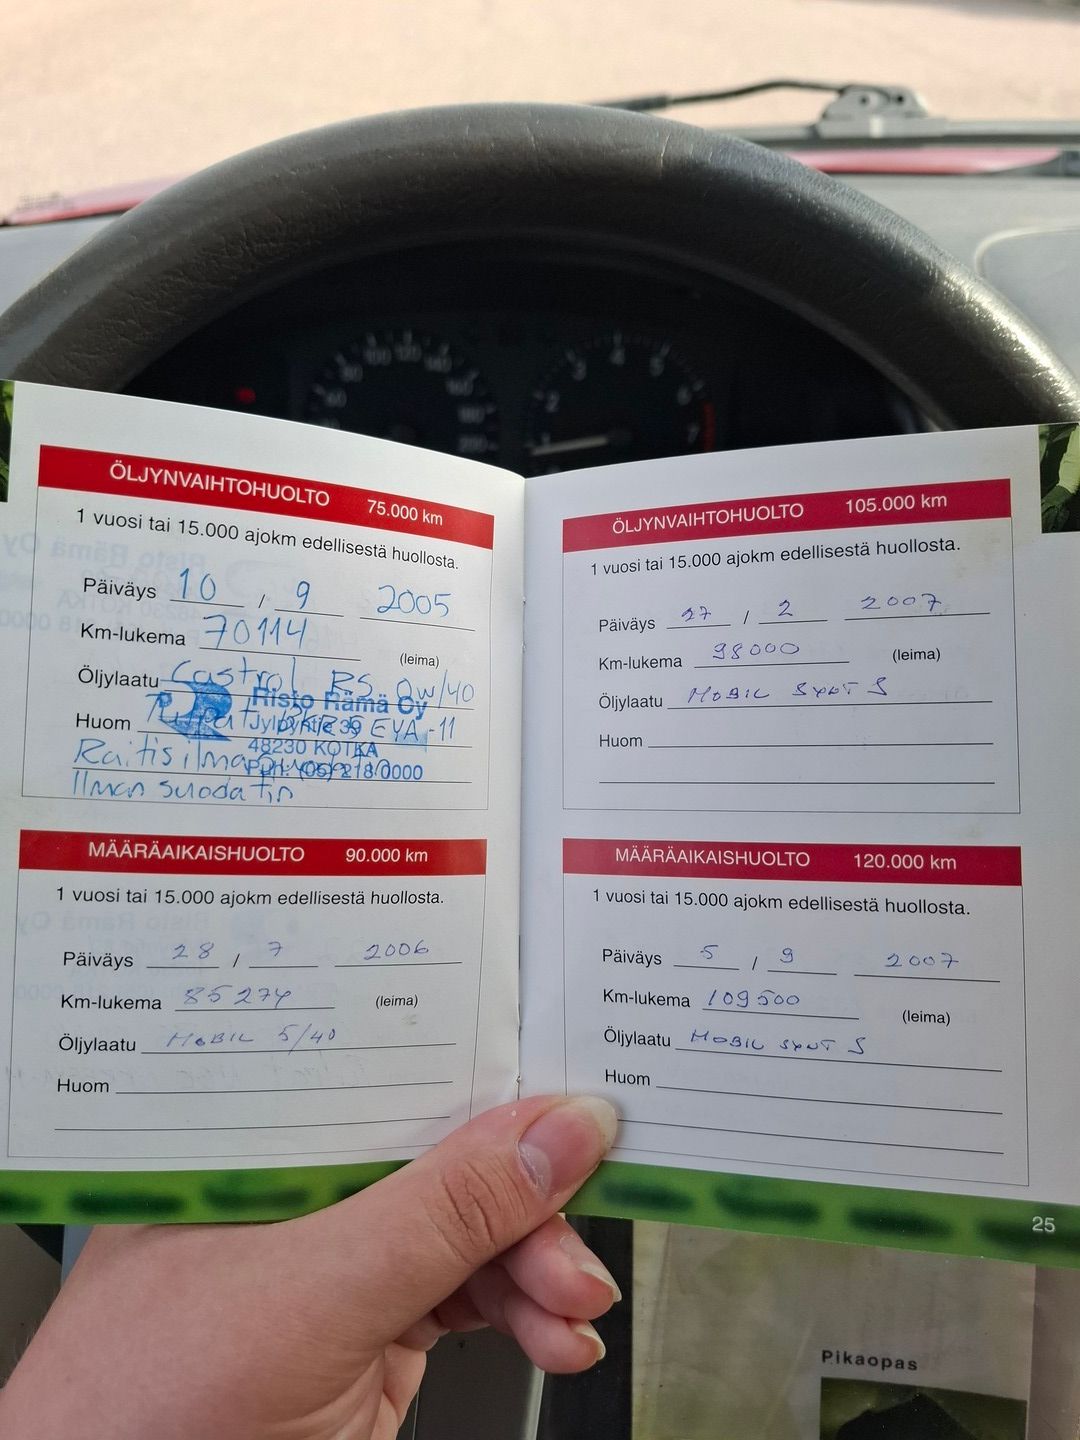 ÖLJYNVAIHTOHUOLTO 75.000 km
1 vuosi tai 15.000 ajokm edellisestä huollosta.
Päiväys 10 / 9 2005
Km-lukema 70114
(leima)
Öljylaatu Castrol RS 0w/40
Risto Rämä Oy
Huom Tulpat BKR5EYA-11
Jylpyntie 39
48230 KOTKA
Raitisilmasuodatin
Puh. (05) 218 0000
Ilman suodatin
MÄÄRÄAIKAISHUOLTO 90.000 km
1 vuosi tai 15.000 ajokm edellisestä huollosta.
Päiväys 28 / 7 2006
Km-lukema 85274 (leima)
Öljylaatu MOBIL 5/40
Huom
ÖLJYNVAIHTOHUOLTO 105.000 km
1 vuosi tai 15.000 ajokm edellisestä huollosta.
Päiväys 27 / 2 2007
Km-lukema 98000 (leima)
Öljylaatu MOBIL SYNT S
Huom
MÄÄRÄAIKAISHUOLTO 120.000 km
1 vuosi tai 15.000 ajokm edellisestä huollosta.
Päiväys 5 / 9 2007
Km-lukema 109500
(leima)
Öljylaatu MOBIL SYNT S
Huom
25
Pikaopas